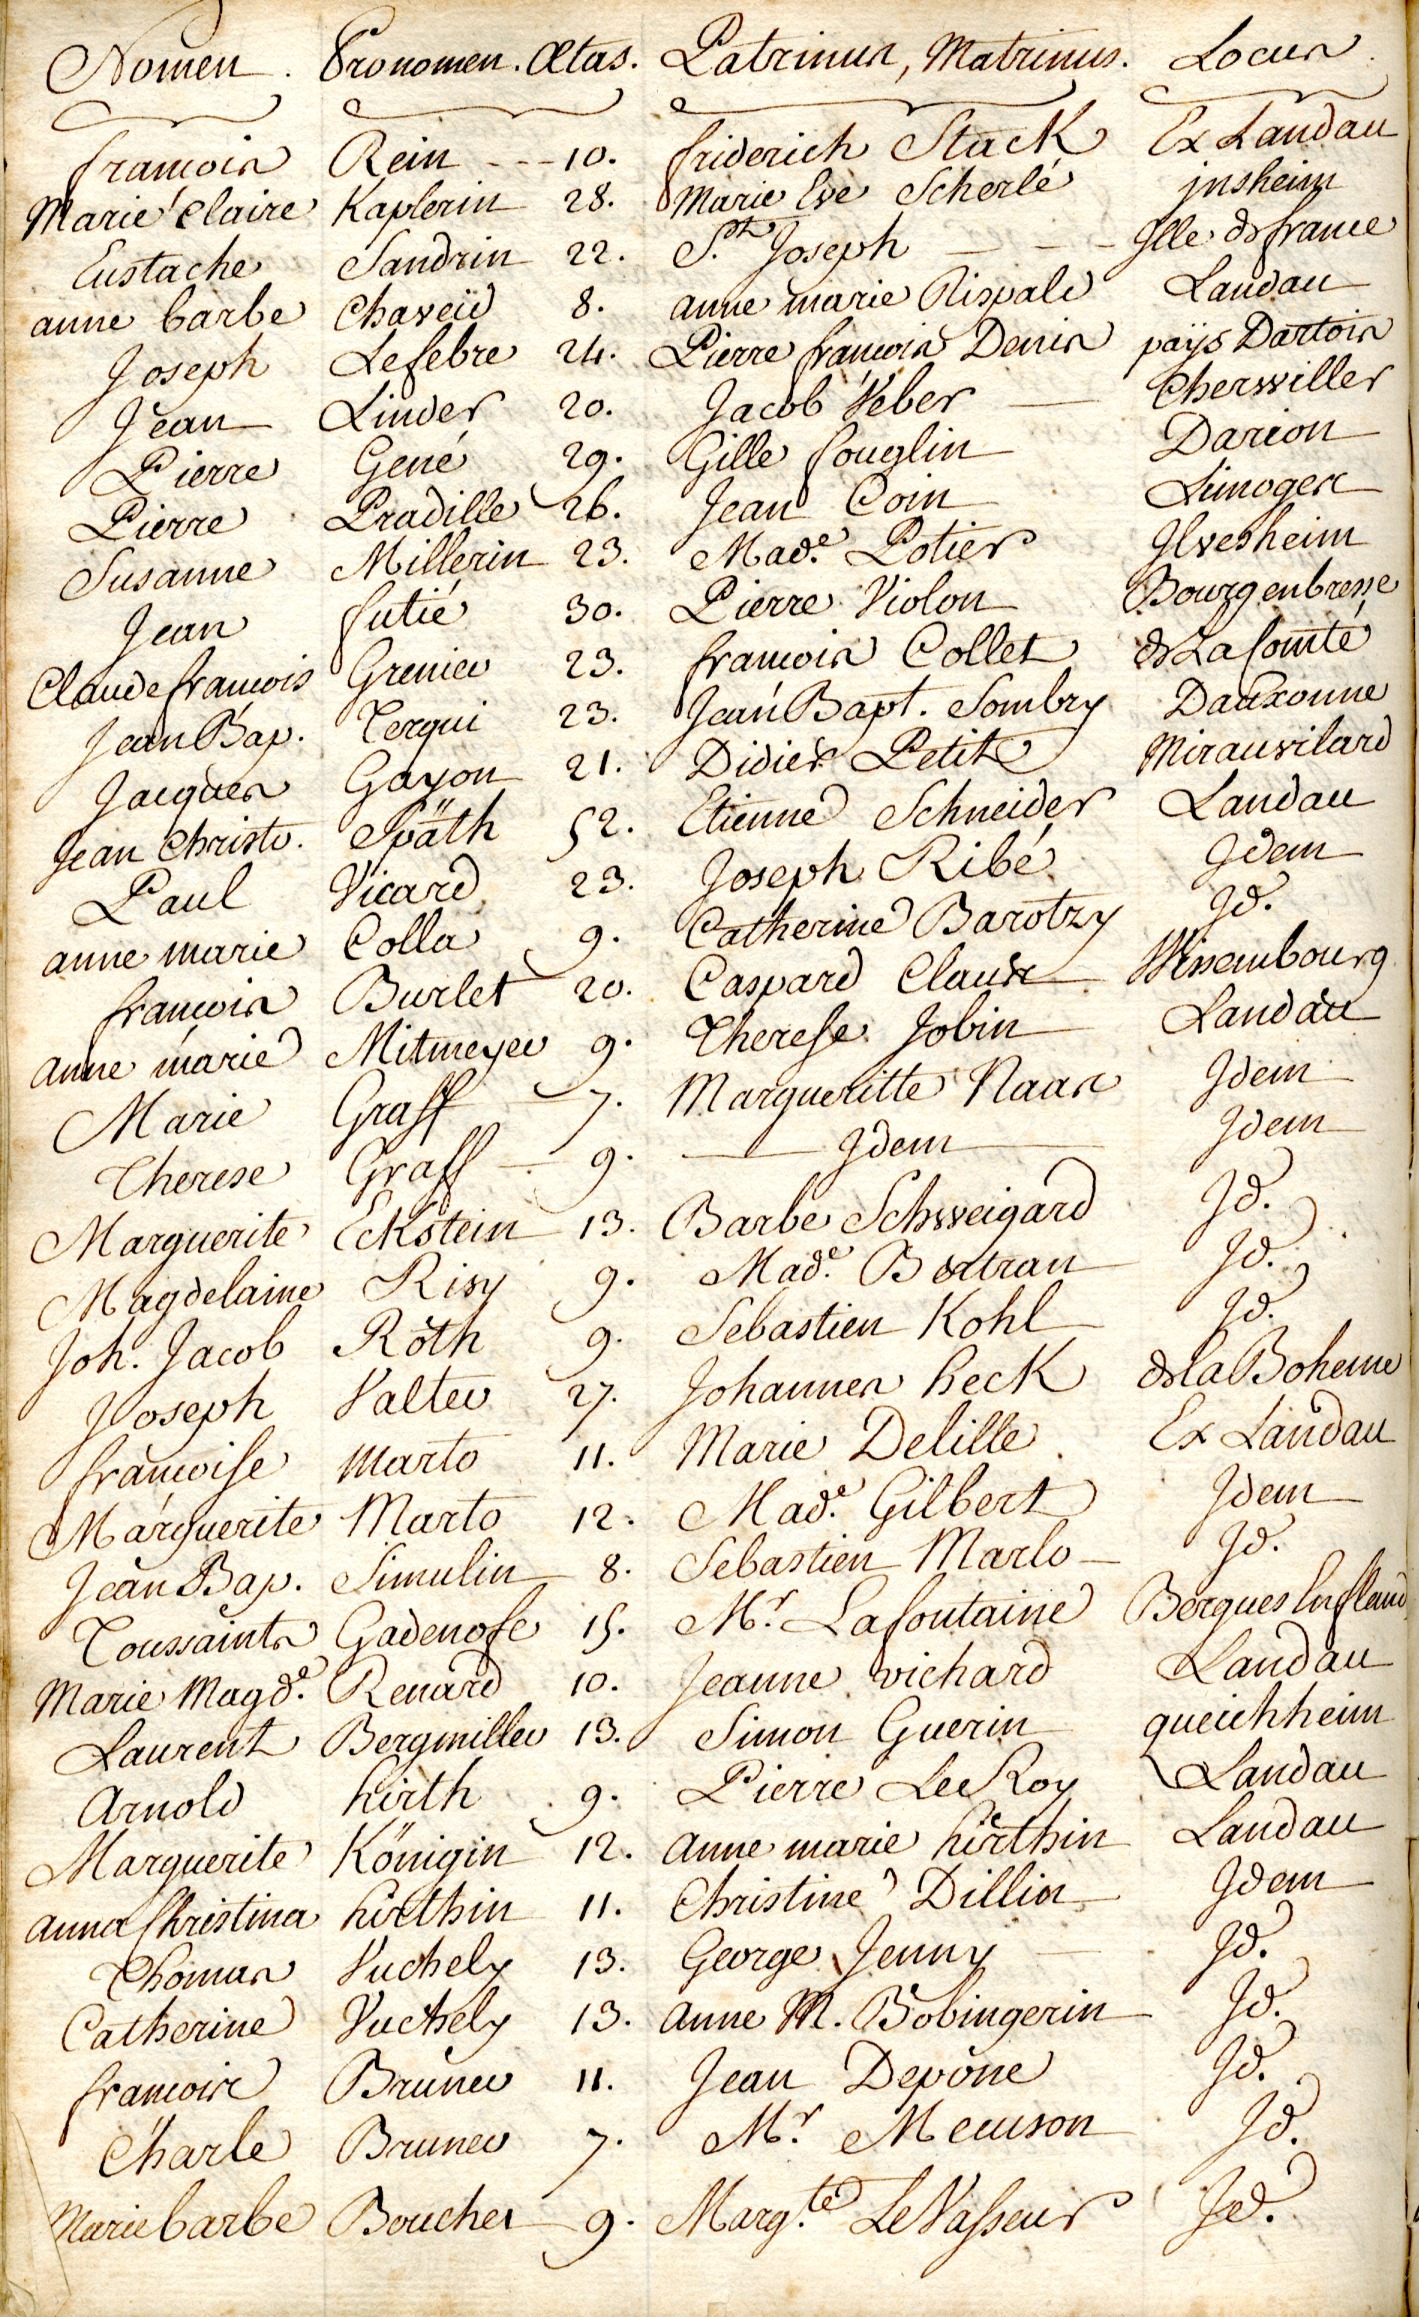 Nomen. Pronomen. Ætas. Patrinus, Matrinus. Locus.
francois Rein --- 10. friderich Stack Ex Landau
Marie Claire Kaplerin 28. Marie Eve Scherlé jnsheim
Eustache Sandrin 22. St. Joseph - - - Jlle de france
anne barbe Chaveïd 8. anne marie Rispald Landau
Joseph Lefebre 24. Pierre francois Denis païs Dartois
Jean Linder 20. Jacob Veber — Cherwiller
Pierre Gené 29. Gille fouglin Darion
Pierre Pradille 26. Jean Coin Limoges
Susanne Millerin 23. Made. Potier Jlvesheim
Jean futié 30. Pierre Violon Bourgenbresse
Claude francois Grenier 23. francois Collet de La Comté
Jean Bap. Tergui 23. Jean Bapt. Sombry Dauxonne
Jacques Gayon 21. Didier Petit Mirauvilard
Jean Christo. Späth 52. Etienne Schneider Landau
Paul Vicard 23. Joseph Ribé Jdem
anne marie Colla 9. Catherine Barotzy Jd.
francois Burlet 20. Caspard Claus Wissembourg
anne marie Mitmeyer 9. Therese Jobin Landau
Marie Graff 7. Margueritte Naas Jdem
Therese Graff — 9. — Jdem — Jdem
Marguerite Eckstein 13. Barbe Schweigard Jd.
Magdelaine Risy 9. Made. Bertran Jd.
Joh. Jacob Röth 9. Sebastien Kohl Jd.
Joseph Valter 27. Johannes heck de la Boheme
francoise Marto 11. Marie Delille Ex Landau
Marguerite Marto 12. Made. Gilbert Jdem
Jean Bap. Simulin 8. Sebastien Marlo — Jd.
Toussaints Gadenofe 15. Mr. Lafontaine Bergues
Marie Magde. Renard 10. Jeanne vichard Landau
Laurent Bergmiller 13. Simon Guerin queichheim
Arnold hirth 9. Pierre Lee Roy Landau
Marguerite Königin 12. anne marie hirthin Landau
anna Christina hirthin 11. Christine Dillin Jdem
Thomas Vuchely 13. George Jenny — Jd.
Catherine Vuchely 13. anne M. Bobingerin Jd.
francois Bruner 11. Jean Depône Jd.
Charle Bruner 7. Mr. Meuson Jd.
Marie barbe Boucher 9. Margte. Le Vasseur Jd.